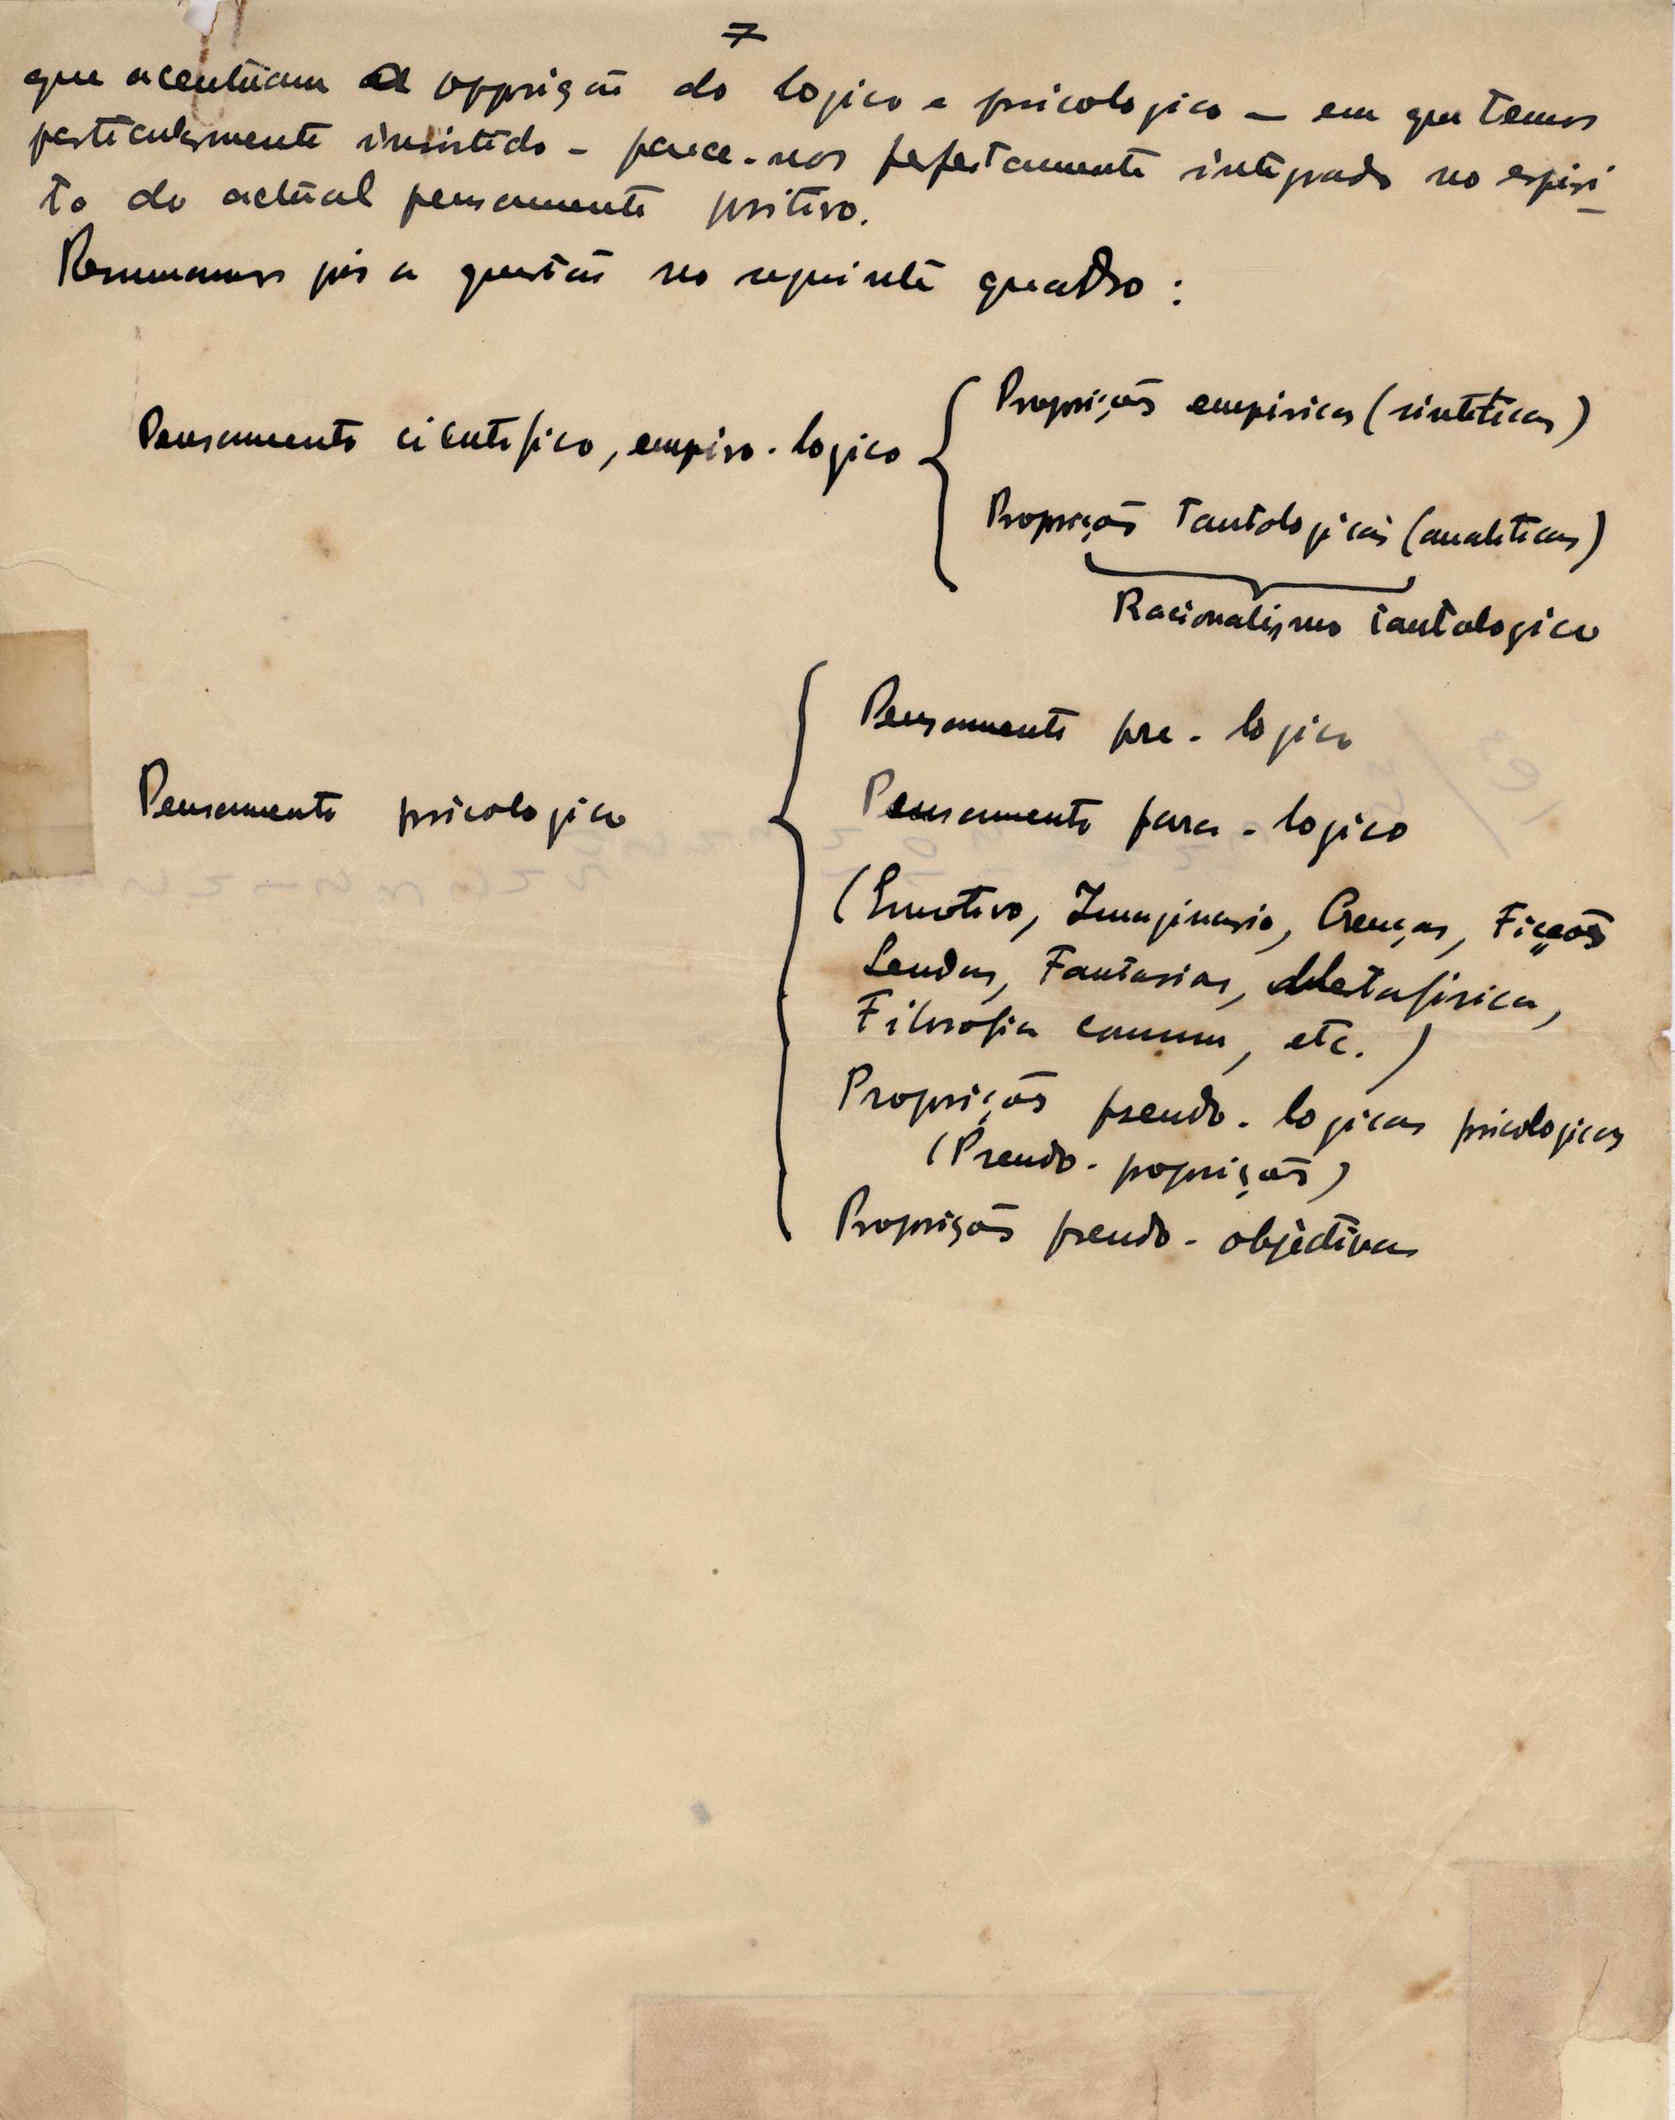 7
que acentuam a opposição do logico e psicologico – em que temos
particularmente insistido – parece-nos perfeitamente integrado no espiri-
to do actual pensamento positivo.
Resumamos pois a questão no seguinte quadro:
Pensamento cientifico, empiro-logico
Proposições empiricas (sinteticas)
Proposições tautologicas (analiticas)
Racionalismo tautologico
Pensamento psicologico
Pensamento pre-logico
Pensamento para-logico
(Emotivo, Imaginario, Crenças, Ficções
Lendas, Fantasias, Metafisica,
Filosofia comum, etc.)
Proposições pseudo-logicas psicologicas
(Pseudo-proposições)
Proposições pseudo-objectivas